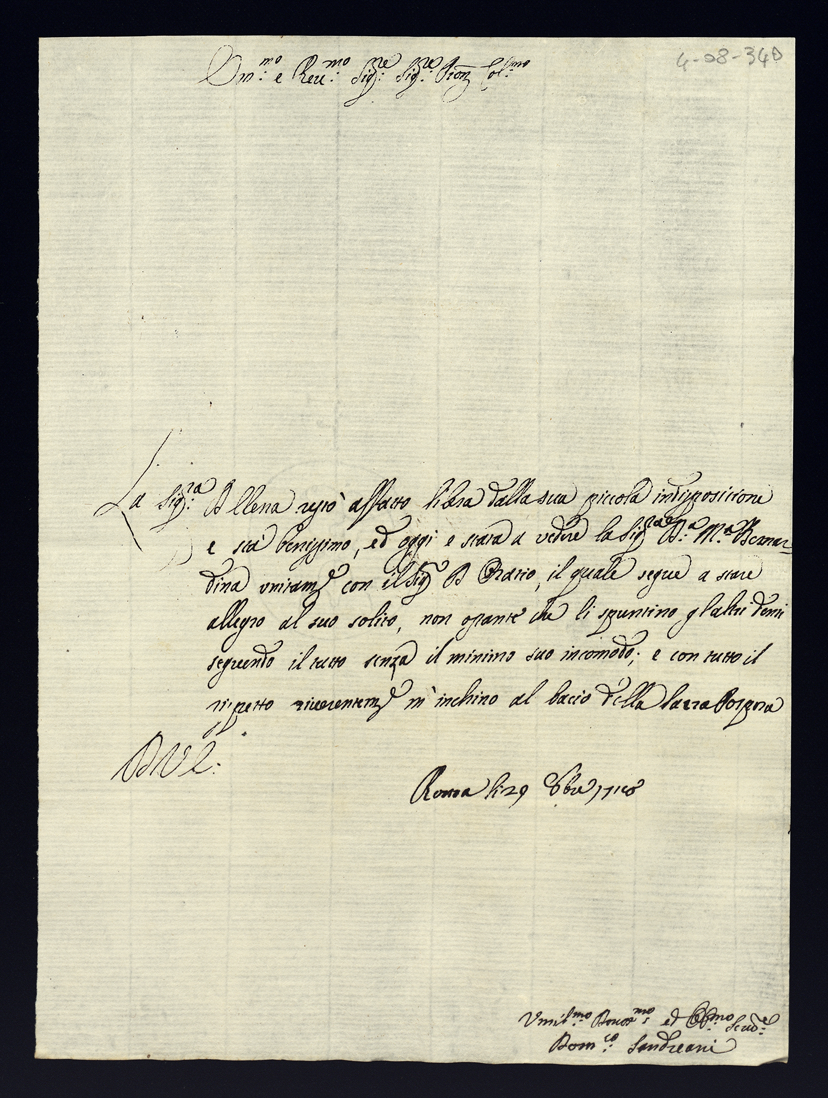 4-08-340
Em.mo e Reu.mo Sig.re Sig.re Pron Col.mo
La Sig.ra D Llena restò affatto libra dalla sua piccola indisposicione
e stà benissimo, ed oggi e stata a vedere la Sig.ra D.a M.a Bernar
dina unitam.e con il Sig.e D Oratio, il quale segue a stare
allegro al suo solito, non ostante che li spuntino gl'altri denti
seguendo il tutto senza il minimo suo incomodo; e con tutto il
rispetto riuerentem.e m'inchino al bacio della Sacra Porpora
D V E:
Roma li 29 8bre
Vmil.mo Deuot.mo ed Obl.mo Seru.e
Dom.co Sandreani